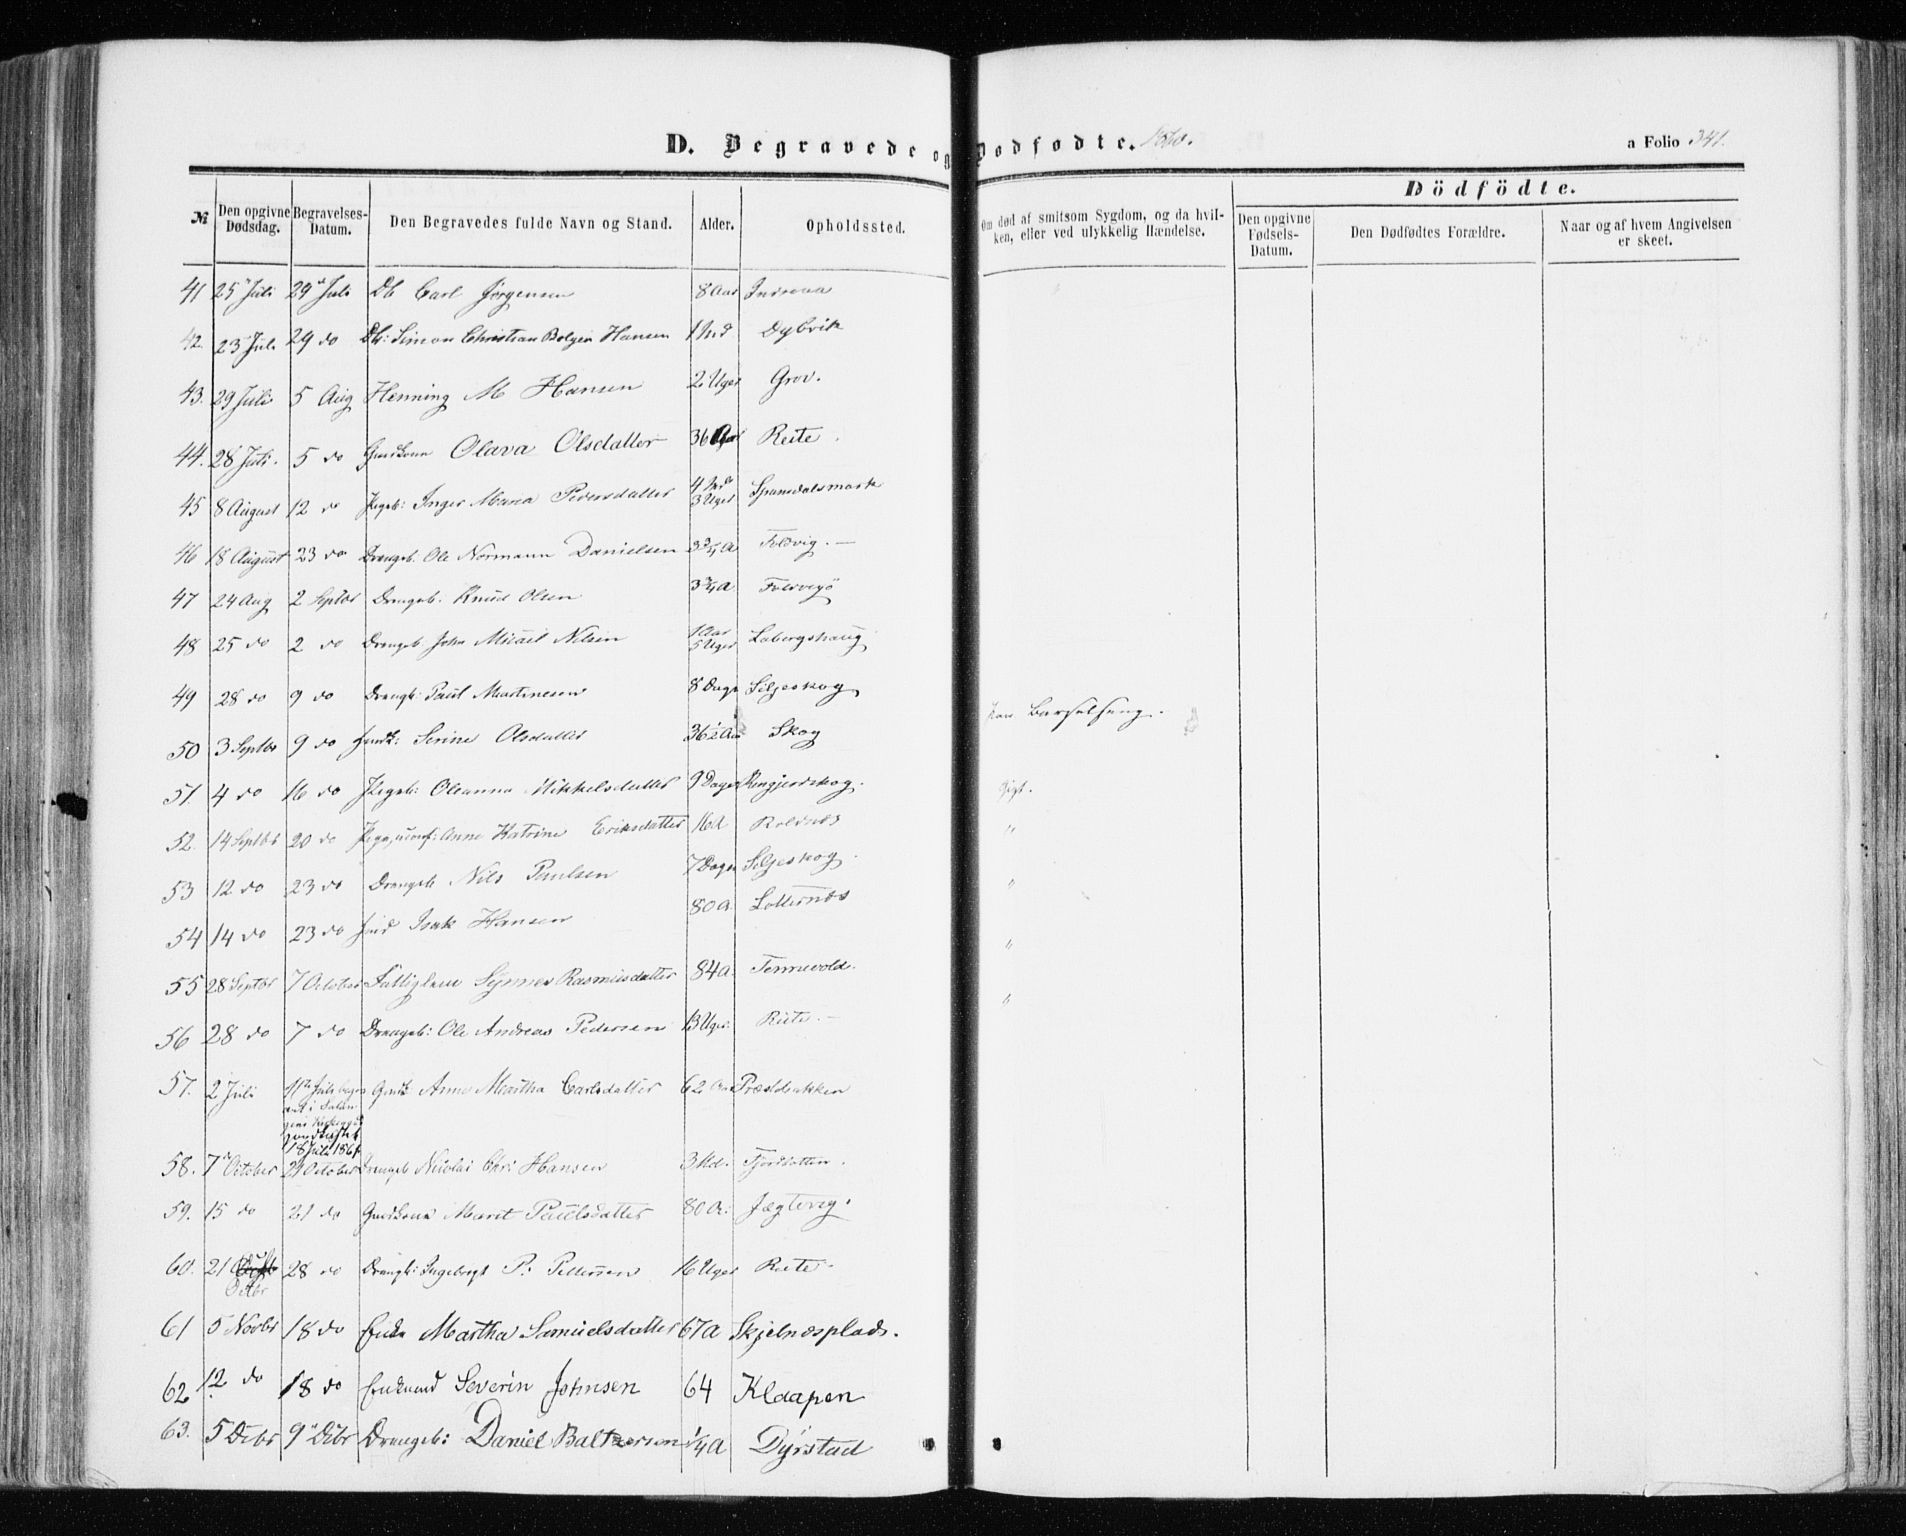 D. Begravede og Dødfødte. 1860.
a Folio 341.
Dödfödte.
№ Den opgivne Dødsdag. Begravelses-Datum. Den Begravedes fulde Navn og Stand. Alder. Opholdssted. Om død af smitsom Sygdom, og da hvilken, eller ved ulykkelig Hændelse. Den opgivne Fødsels-Datum. Den Dødfødtes Forældre. Naar og af hvem Angivelsen er skeet.
41 25 Juli 29 Juli Db Carl Jørgensen 8 Aar
42. 23 Juli 29 do Db: Simon Christian Hansen 1 Md Dybvik
43. 29 Juli 5 Aug Henning M Hansen 2 Uger Grov.
44. 28 Juli. 5 do Olava Olsdatter 36 Aar Reite
45 8 August 12 do Pigeb: Inger Maria Pedersdatter 4 Md 3 Uger Spansdalsmark
46 18 August 23 do Drengeb. Ole Normann Danielsen 3 3/4 A Foldvig.—
47 24 Aug 2 Septbr Drengeb. Knud Olsen 3 3/4 A
48 25 do 2 do Drengeb John Micael Nilsen 1 Aar 5 Uger Labergshaug
49 28 do 9 do Drengb: Paul Martinesen 8 Dage Seljeskog
50 3 Septbr 9 do Serine Olsdatter 36 1/2 Aar Skog Barselseng.
51 4 do 16 do Pigeb: Oleanna Mikkelsdatter 9 Dage Gigt.
52. 14 Septbr 20 do Anne Katrine Eriksdatter 16 A Roldnæs "
53 12 do 23 do Drengeb Nils Paulsen 7 Dage Seljeskog. "
54 14 do 23 do Isak Hansen 80 A. Lotternæs "
55 28 Septbr 7 October Fattiglem Synnes Rasmusdatter 84 A. Tennevold. "
56 28 do 7 do Drengeb: Ole Andreas Pedersen 13 Uger. Reite.—
57. 2 Juli 11te Juli begravet i Salangens Anne Martha Carlsdatter 62 Aar Præstbakken
18 Juli 186
58. 7 October 21 October Drengeb Nicolai Chr: Hansen 3 Md.
59. 15 do 21 do Marit Paulsdatter 80 A: Jægtevig.
60. 21 Octbr 28 do Drengb: Ingebrigt P. Pettersen 16 Uger Reite
61 5 Novbr 18 do Enke Martha Samuelsdatter 67 A Skjelnæsplads.
62 12 do 18 do Enkemd Severin Johnsen 64 Klaapen
63. 5 Debr 9 Dcbr Drengeb: Daniel Baltzersen 1/4 A Dyrstad